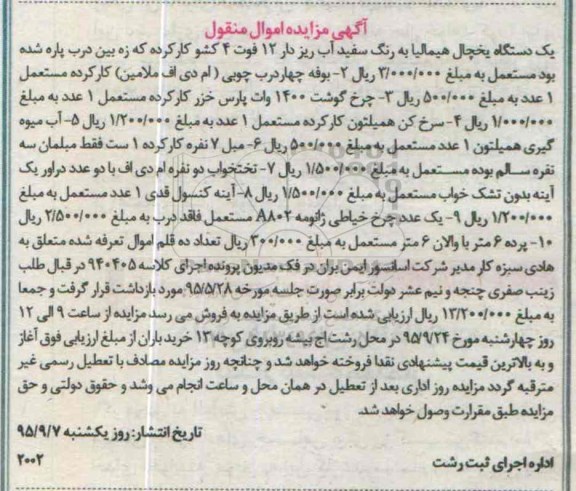 آگهی مزایده اموال منقول
یک دستگاه یخچال هیمالیا به رنگ سفید آب ریز دار ۱۲ فوت ۴ کشو کارکرده که زه بین درب پاره شده
بود مستعمل به مبلغ ۳/۰۰۰/۰۰۰ ریال ۲- بوفه چهاردرب چوبی ( ام دی اف ملامین) کارکرده مستعمل
۱ عدد به مبلغ ۵۰۰/۰۰۰ ریال ۳- چرخ گوشت ۱۴۰۰ وات پارس خزر کارکرده مستعمل ۱ عدد به مبلغ
۱/۰۰۰/۰۰۰ ریال ۴- سرخ کن همیلتون کارکرده مستعمل ۱ عدد به مبلغ ۱/۲۰۰/۰۰۰ ریال ۵- آب میوه
گیری همیلتون ۱ عدد مستعمل به مبلغ ۵۰۰/۰۰۰ ریال ۶- مبل ۷ نفره کارکرده ۱ ست فقط مبلمان سه
نفره سالم بوده مستعمل به مبلغ ۱/۵۰۰/۰۰۰ ریال ۷- تختخواب دو نفره ام دی اف با دو عدد دراور یک
آینه بدون تشک خواب مستعمل به مبلغ ۱/۵۰۰/۰۰۰ ریال ۸- آینه کنسول قدی ۱ عدد مستعمل به مبلغ
۱/۲۰۰/۰۰۰ ریال ۹- یک عدد چرخ خیاطی ژانومه A۸۰۲ مستعمل فاقد درب به مبلغ ۲/۵۰۰/۰۰۰ ریال
۱۰- پرده ۶ متر با والان ۶ متر مستعمل به مبلغ ۳۰۰/۰۰۰ ریال تعداد ده قلم اموال تعرفه شده متعلق به
هادی سبزه کار مدیر شرکت آسانسور ایمن بران در فک مدیون پرونده اجرای کلاسه ۹۴۰۴۰۵ در قبال طلب
زینب صفری چنجه و نیم عشر دولت برابر صورت جلسه مورخه ۹۵/۵/۲۸ مورد بازداشت قرار گرفت و جمعا
به مبلغ ۱۳/۲۰۰/۰۰۰ ریال ارزیابی شده است از طریق مزایده به فروش می رسد مزایده از ساعت ۹ الی ۱۲
روز چهارشنبه مورخ ۹۵/۹/۲۴ در محل رشت اج بیشه روبروی کوچه ۱۳ خرید باران از مبلغ ارزیابی فوق آغاز
و به بالاترین قیمت پیشنهادی نقدا فروخته خواهد شد و چنانچه روز مزایده مصادف با تعطیل رسمی غیر
مترقبه گردد مزایده روز اداری بعد از تعطیل در همان محل و ساعت انجام می وشد و حقوق دولتی و حق
مزایده طبق مقرارت وصول خواهد شد.
تاریخ انتشار: روز یکشنبه ۹۵/۹/۷
اداره اجرای ثبت رشت
۲۰۰۲